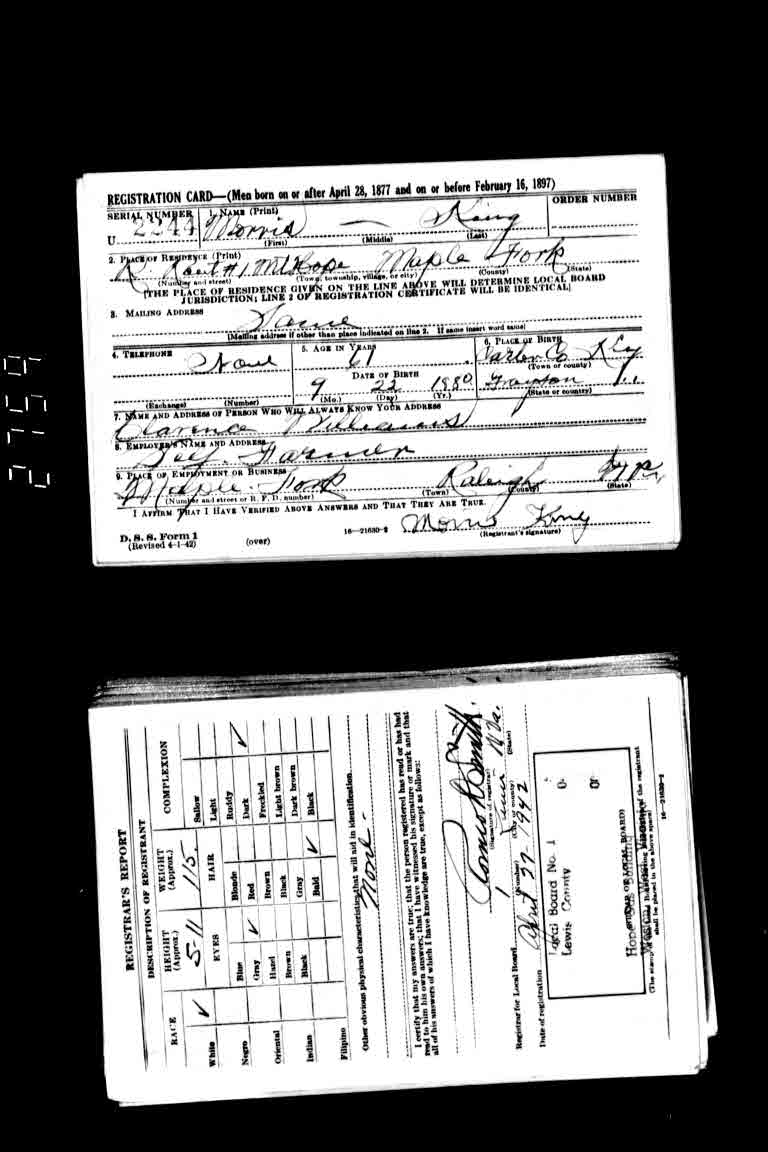 REGISTRATION CARD—(Men born on or after April 28, 1877 and on or before February 16, 1897)
SERIAL NUMBER 1. NAME (Print) ORDER NUMBER
U 2244 Morris — King
(First) (Middle) (Last)
2. PLACE OF RESIDENCE (Print)
R. Rout #1 Mt Hope Maple Fork
(Number and street) (Town, township, village, or city) (County) (State)
[THE PLACE OF RESIDENCE GIVEN ON THE LINE ABOVE WILL DETERMINE LOCAL BOARD
JURISDICTION; LINE 2 OF REGISTRATION CERTIFICATE WILL BE IDENTICAL]
3. MAILING ADDRESS
Same
[Mailing address if other than place indicated on line 2. If same insert word same]
4. TELEPHONE 5. AGE IN YEARS 6. PLACE OF BIRTH
None 61 Carter Co Ky
(Town or county)
DATE OF BIRTH
9 22 1880 Grayson
(Exchange) (Number) (Mo.) (Day) (Yr.) (State or country)
7. NAME AND ADDRESS OF PERSON WHO WILL ALWAYS KNOW YOUR ADDRESS
Clarence Williams
8. EMPLOYER'S NAME AND ADDRESS
Self. Farmer
9. PLACE OF EMPLOYMENT OR BUSINESS
Maple Fork Raleigh
(Number and street or R. F. D. number) (Town) (County) (State)
I AFFIRM THAT I HAVE VERIFIED ABOVE ANSWERS AND THAT THEY ARE TRUE.
D. S. S. Form 1 16—21630-2 Morris King
(Revised 4-1-42) (over) (Registrant's signature)
2759
REGISTRAR'S REPORT
DESCRIPTION OF REGISTRANT
RACE HEIGHT (Approx.) WEIGHT (Approx.) COMPLEXION
5-11 115.
EYES HAIR
White ✓ Blue Blonde Sallow
Negro Gray ✓ Red Light
Oriental Hazel Brown Ruddy
Indian Brown Black Dark ✓
Filipino Black Gray Freckled
Bald ✓ Light brown
Dark brown
Black
Other obvious physical characteristics that will aid in identification
None-
I certify that my answers are true; that the person registered has read or has had
read to him his own answers; that I have witnessed his signature or mark and that
all of his answers of which I have knowledge are true, except as follows:
Smith
(Signature of registrar)
Registrar for Local Board 1 Lewis W. Va.
(Number) (City or county) (State)
Date of registration April 27-1942
Local Board No. 1
Lewis County
Hope Gas Building
(STAMP OF LOCAL BOARD)
(The stamp of the Local Board having jurisdiction of the registrant
shall be placed in the above space)
16—21630-1